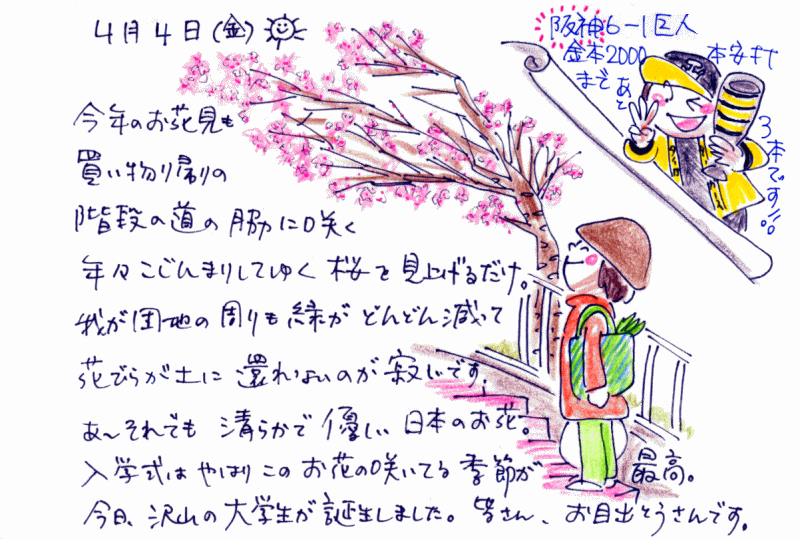 4月4日(金)
阪神6-1巨人
金本2000本安打
まであと
3本です!!
今年のお花見も
買い物り帰りの
階段の道の脇に咲く
年々こじんまりしてゆく桜を見上げるだけ。
我が団地の周りも緑がどんどん減って
花びらが土に還れないのが寂しいです。
あ〜それでも清らかで優しい日本のお花。
入学式はやはりこのお花の咲いてる季節が最高。
今日、沢山の大学生が誕生しました。皆さん、お目出とうさんです。